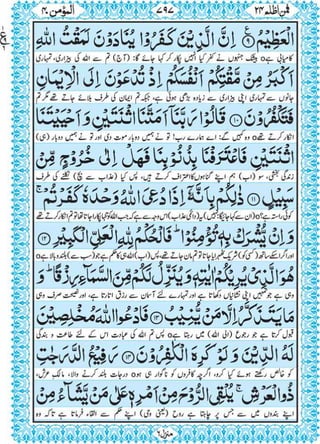 المؤمن ۴۰ ۷۹۷ فمن اظلم ۲۴
الْعَظِيْمُ ﴿۹﴾ اِنَّ الَّذِيْنَ كَفَرُوْا يُنَادَوْنَ لَمَقْتُ اللّٰهِ
کامیابی ہے ○ بیشک جنہوں نے کفر کیا انہیں پکار کر کہا جائے گا: (آج) تم سے اللہ کی بیزاری، تمہاری
اَكْبَرُ مِنْ مَّقْتِكُمْ اَنْفُسَكُمْ اِذْ تُدْعَوْنَ اِلَى الْاِيْمَانِ
جانوں سے تمہاری اپنی بیزاری سے زیادہ بڑھی ہوئی ہے، جبکہ تم ایمان کی طرف بلائے جاتے تھے مگر تم
فَتَكْفُرُوْنَ ﴿۱۰﴾ قَالُوْا رَبَّنَاۤ اَمَتَّنَا اثْنَتَيْنِ وَاَحْيَيْتَنَا
انکار کرتے تھے ○ وہ کہیں گے: اے ہمارے رب! تو نے ہمیں دوبار موت دی اور تو نے ہمیں دوبار (ہی)
اثْنَتَيْنِ فَاعْتَرَفْنَا بِذُنُوْبِنَا فَهَلْ اِلٰى خُرُوْجٍ مِّنْ
زندگی بخشی، سو (اب) ہم اپنے گناہوں کا اعتراف کرتے ہیں، پس کیا (عذاب سے بچ) نکلنے کی طرف
سَبِيْلٍ ﴿۱۱﴾ ذٰلِكُمْ بِاَنَّهٗۤ اِذَا دُعِيَ اللّٰهُ وَحْدَهٗ كَفَرْتُمْ ۚ
وَ اِنْ يُّشْرَكْ بِهٖ تُؤْمِنُوْا ؕ فَالْحُكْمُ لِلّٰهِ الْعَلِيِّ الْكَبِيْرِ ﴿۱۲﴾
هُوَ الَّذِيْ يُرِيْكُمْ اٰيٰتِهٖ وَ يُنَزِّلُ لَكُمْ مِّنَ السَّمَآءِ رِزْقًا ؕ وَ
وہی ہے جو تمہیں اپنی نشانیاں دکھاتا ہے اور تمہارے لئے آسمان سے رزق اتارتا ہے، اور نصیحت صرف وہی
مَا يَتَذَكَّرُ اِلَّا مَنْ يُّنِيْبُ ﴿۱۳﴾ فَادْعُوا اللّٰهَ مُخْلِصِيْنَ
قبول کرتا ہے جو رجوع (الی اللہ) میں رہتا ہے ○ پس تم اللہ کی عبادت اس کے لئے طاعت و بندگی
لَهُ الدِّيْنَ وَ لَوْ كَرِهَ الْكٰفِرُوْنَ ﴿۱۴﴾ رَفِيْعُ الدَّرَجٰتِ
کو خالص رکھتے ہوئے کیا کرو، اگرچہ کافروں کو ناگوار ہی ہو ○ درجات بلند کرنے والا، مالکِ عرش،
ذُو الْعَرْشِ ۚ يُلْقِي الرُّوْحَ مِنْ اَمْرِهٖ عَلٰى مَنْ يَّشَآءُ مِنْ
اپنے بندوں میں سے جس پر چاہتا ہے روح (یعنی وحی) اپنے حکم سے القاء فرماتا ہے تاکہ وہ
منزل ٦